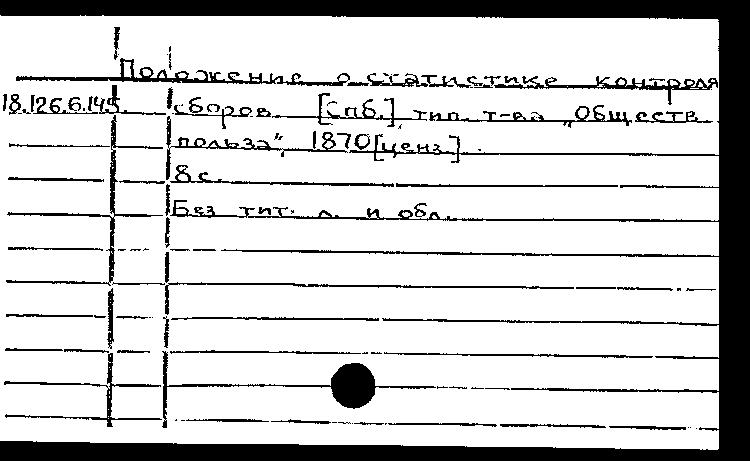 Положение о статистике контроля
18.126.6.145. сборов. [Спб.], тип. т-ва „Обществ.
польза", 1870 [ценз.].
8 с.
Без тит. л. и обл.